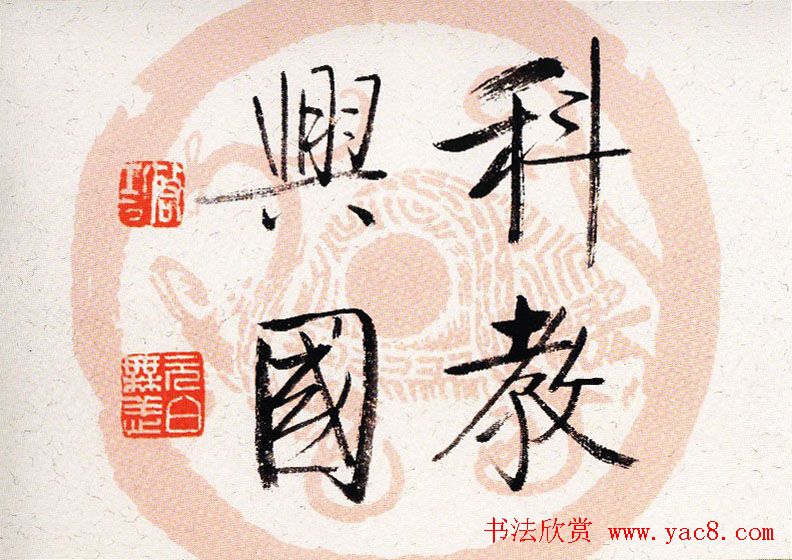 科教
興國
元白無恙
书法欣赏 www.yac8.com